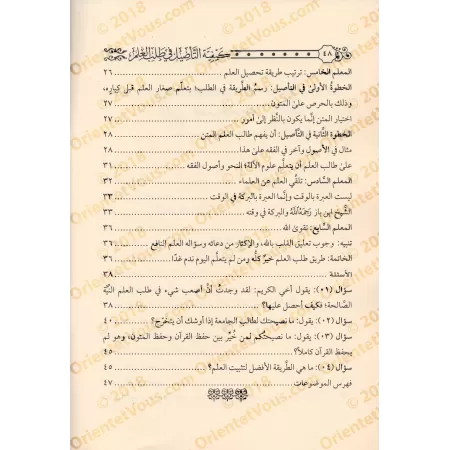 ٤٨ كيفية التأصيل في طلب العلم
المعلم الخامس: ترتيب طريقة تحصيل العلم ٢٦
الخطوة الأولى في التأصيل: رسم الطريقة في الطلب؛ بتعلم صغار العلم قبل كباره،
وذلك بالحرص على المتون ٢٧
اختيار المتن إنما يكون بالنظر إلى أمور ٢٧
الخطوة الثانية في التأصيل: أن يفهم طالب العلم المتن ٢٨
مثال في الأصول وآخر في الفقه على هذا ٢٨
على طالب العلم أن يتعلم علوم الآلة؛ النحو وأصول الفقه ٣١
المعلم السادس: تلقي العلم عن العلماء ٣٢
ليست العبرة بالوقت وإنما العبرة بالبركة في الوقت ٣٣
الشيخ ابن باز رحمه الله والبركة في وقته ٣٣
المعلم السابع: تقوى الله ٣٤
تنبيه: وجوب تعليق القلب بالله، والإكثار من دعائه وسؤاله العلم النافع ٣٦
الخاتمة: طريق طلب العلم خير كله ومن لم يتعلم اليوم ندم غدا ٣٦
الأسئلة ٣٨
سؤال (٠١): يقول أخي الكريم: لقد وجدت أن أصعب شيء في طلب العلم النية
الصالحة؛ فكيف أحصل عليها؟ ٣٨
سؤال (٠٢): يقول: ما نصيحتك لطالب الجامعة إذا أوشك أن يتخرج؟ ٤٠
سؤال (٠٣): يقول: ما نصيحتكم لمن خير بين حفظ القرآن وحفظ المتون، وهو لم
يحفظ القرآن كاملا؟ ٤٥
سؤال (٠٤): ما هي الطريقة الأفضل لتثبيت العلم؟ ٤٥
فهرس الموضوعات ٤٧
OrientetVous.com © 2018